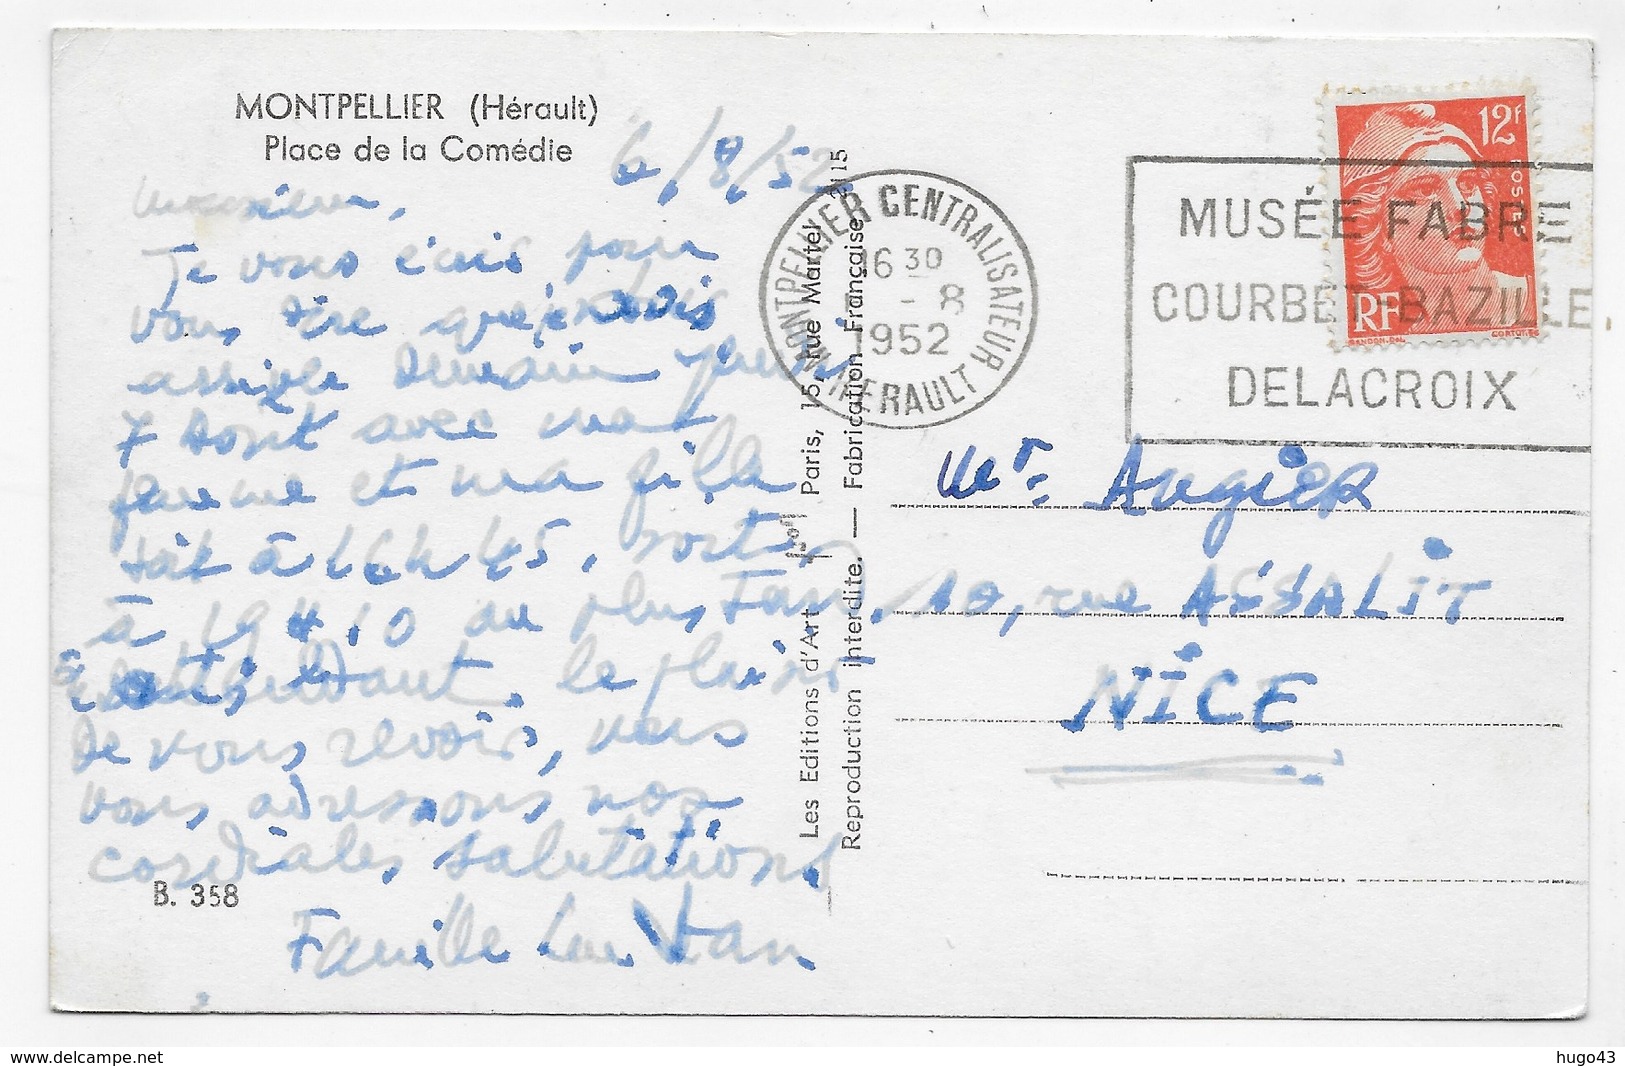 MONTPELLIER (Hérault)
Place de la Comédie
6/8/52
Monsieur,
Je vous écris pour
vous dire que
demain jeudi
7 Août avec ma
femme et ma fille
soit à 16 h 45, soit
à 19 H 10 au plus Tard.
le plaisir
de vous revoir, nous
vous adressons nos
cordiales salutations
Famille
B. 358
Les Editions d'Art Paris, 15, Rue Martel
Reproduction interdite. — Fabrication Française 2115
MONTPELLIER CENTRALISATEUR
HERAULT
16 30
- 8
1952
MUSÉE FABRE
COURBET BAZILLE,
DELACROIX
12F
POSTES
RF
GANDON.DEL
CORTOT.SC
Mr. Augier
10, rue ASSALIT
NICE
www.delcampe.net
hugo43